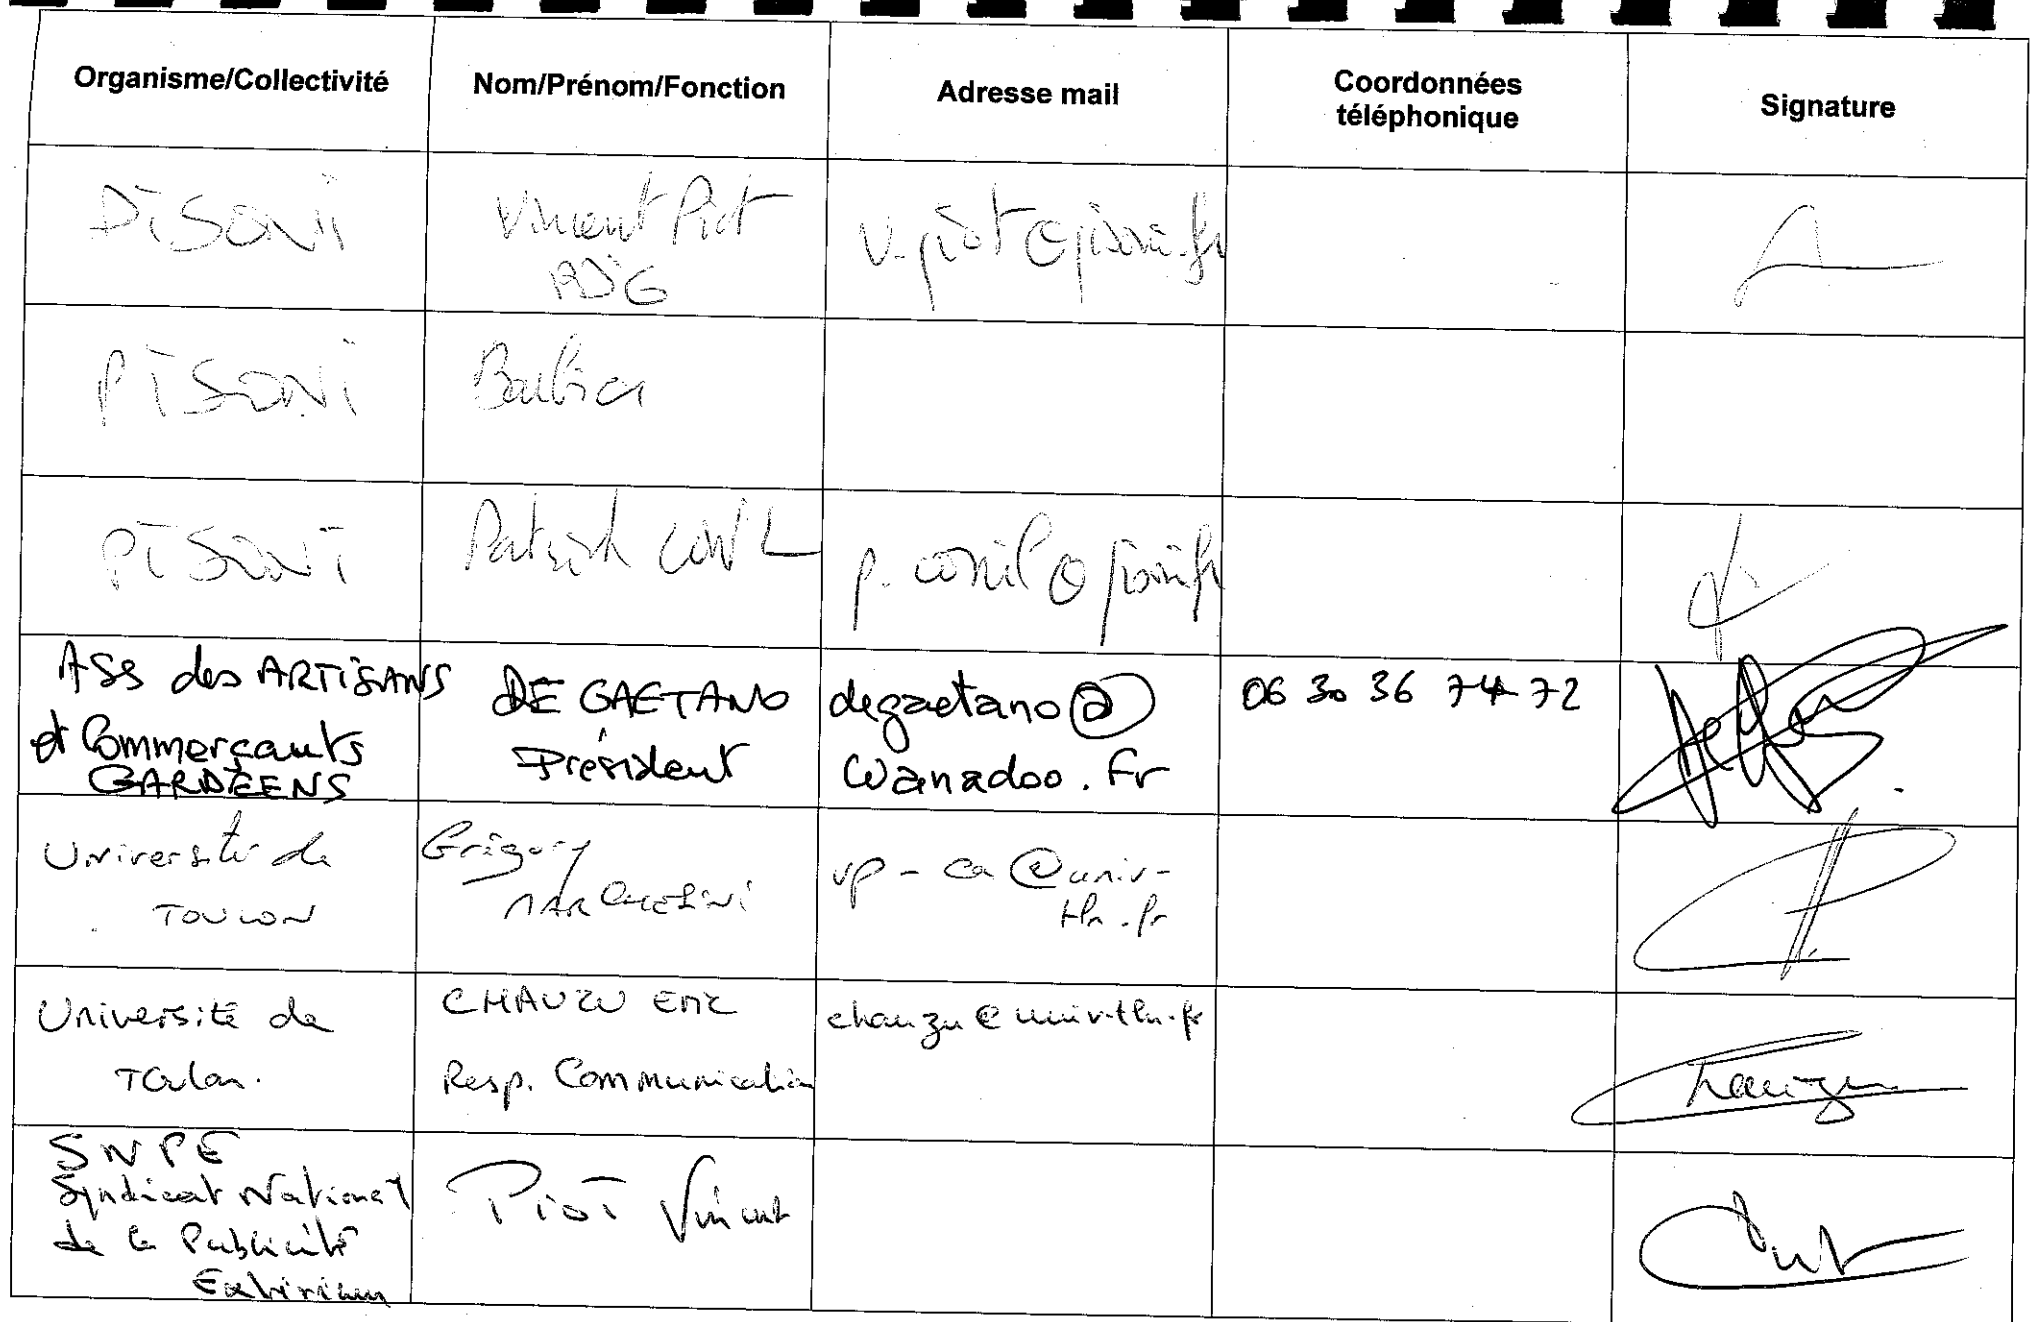 Organisme/Collectivité
Nom/Prénom/Fonction
Adresse mail
Coordonnées
téléphonique
Signature
PISONI
Vincent Piot
v.piot@pisoni.fr
PISONI
Barbier
PISONI
Patrick CONIL
p.conil@pisoni.fr
ASS des ARTISANS
et Commerçants
GARDÉENS
DE GAETANO
Président
degaetano@
wanadoo.fr
06 30 36 74 72
Université de
TOULON
Grégory
MARCHESINI
vp-ca@univ-
tln.fr
Université de
Toulon.
CHAUZU ERIC
Resp. Communication
chauzu@univ-tln.fr
SNPE
Syndicat National
de la Publicité
Extérieure
PIOT Vincent